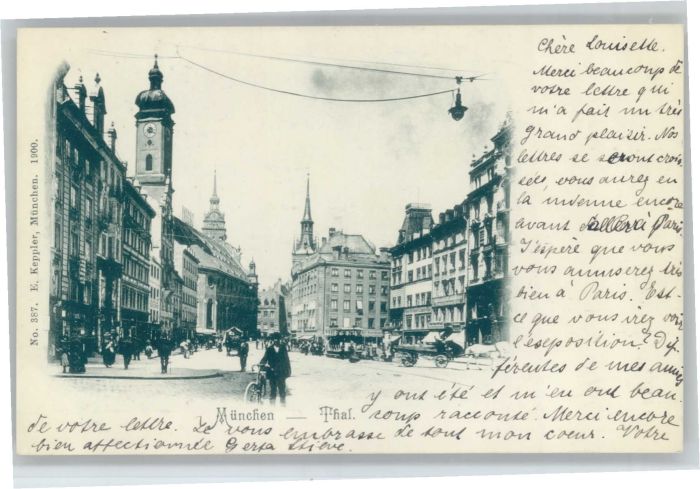 No. 387. E. Keppler, München. 1900.
Chère Louisette.
Merci beaucoup de
votre lettre qui
m'a fait un très
grand plaisir. Nos
lettres se seront crois-
sées, vous aurez eu
la mienne encore
avant d'aller à Paris
J'espère que vous
vous amuserez très
bien à Paris. Est-
ce que vous irez voir
l'exposition. Dif-
férentes de mes amies
y ont été et m'en ont beau-
coup raconté. Merci encore
de votre lettre. Je vous embrasse de tout mon coeur. Votre
bien affectionnée Gerta
München — Thal.